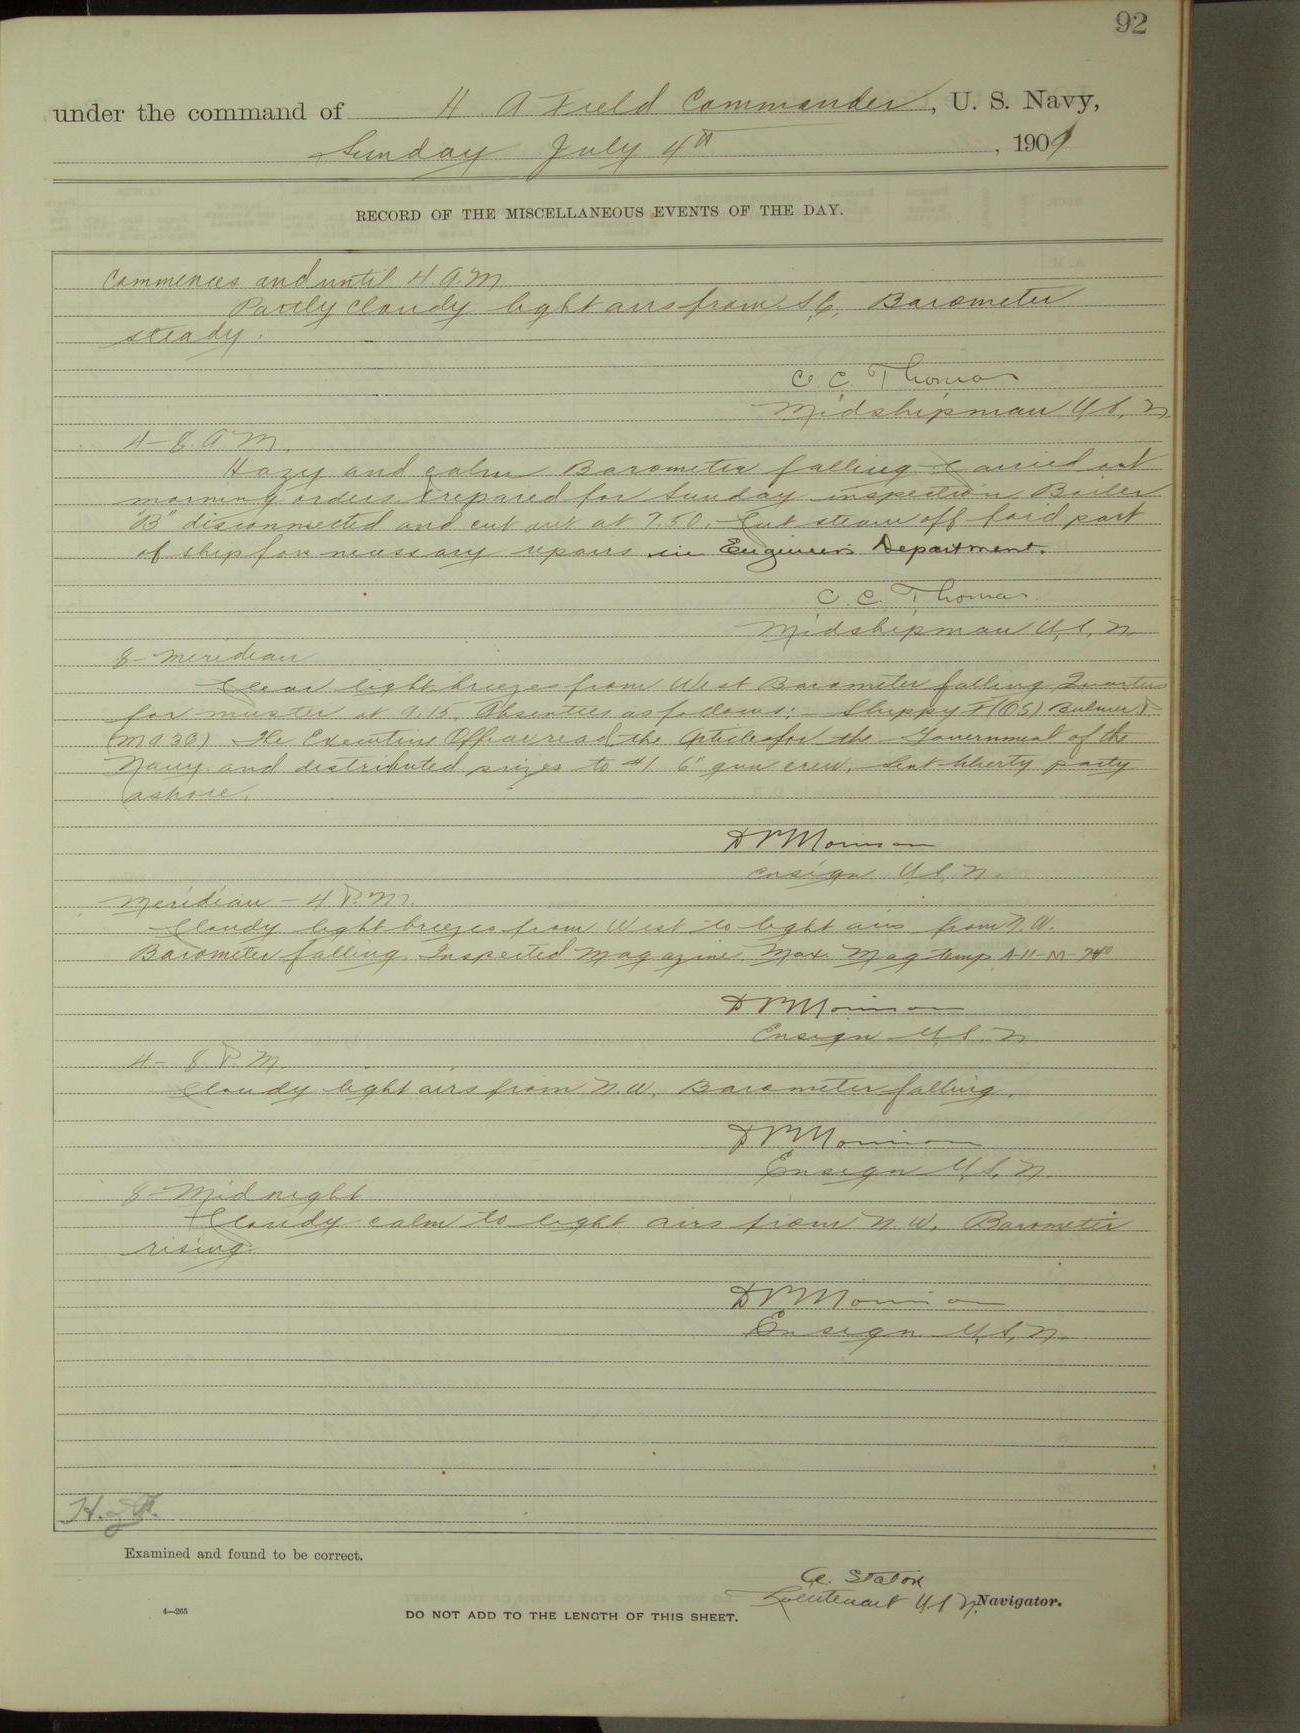 92
under the command of H. A Field Commander, U. S. Navy,
Sunday July 4th, 1909
RECORD OF THE MISCELLANEOUS EVENTS OF THE DAY.
Commences and until 4. A. M
Partly cloudy light airs from S.E. Barometer
steady.
C. C. Thomas
Midshipman U.S.N
4-8 A M.
Hazy and calm Barometer falling Carried out
morning orders. Prepared for Sunday inspection Boiler
"B" disconnected and cut out at 7.50. Cut steam off for'd part
of ship for necessary repairs in Engineer's Department.
C. C. Thomas
Midshipman U.S.N
8-Meridian
Clear light breezes from West Barometer falling Quarters
for muster at 9.15. Absentees as follows: - Shuppy F (OS) Bulmer
The Executive Officer read the Articles for the Government of the
Navy and distributed prizes to #1 6" gun crew. Sent liberty party
ashore.
Morrison
Ensign U.S.N.
Meridian - 4 P.M.
Cloudy light breezes from West to light airs from N.W.
Barometer falling. Inspected Magazine. Max. Mag temp A-11-M-74°
Morrison
Ensign U.S.N
4- 8 P.M.
Cloudy light airs from N.W. Barometer falling.
Morrison
Ensign U.S.N.
8-Midnight
Cloudy calm to light airs from N.W. Barometer
rising.
Morrison
Ensign U.S.N.
Examined and found to be correct.
A. Staton
Lieutenant U S N, Navigator.
4—265
DO NOT ADD TO THE LENGTH OF THIS SHEET.